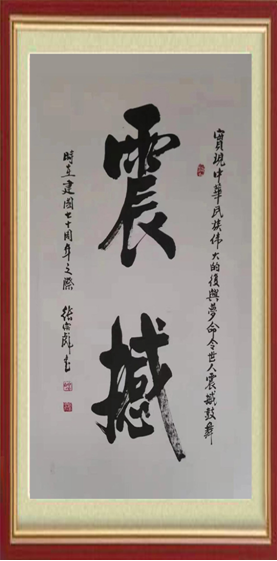 實現中華民族伟大的復興夢令世人震撼鼓舞
震撼
時直建國七十周年之際